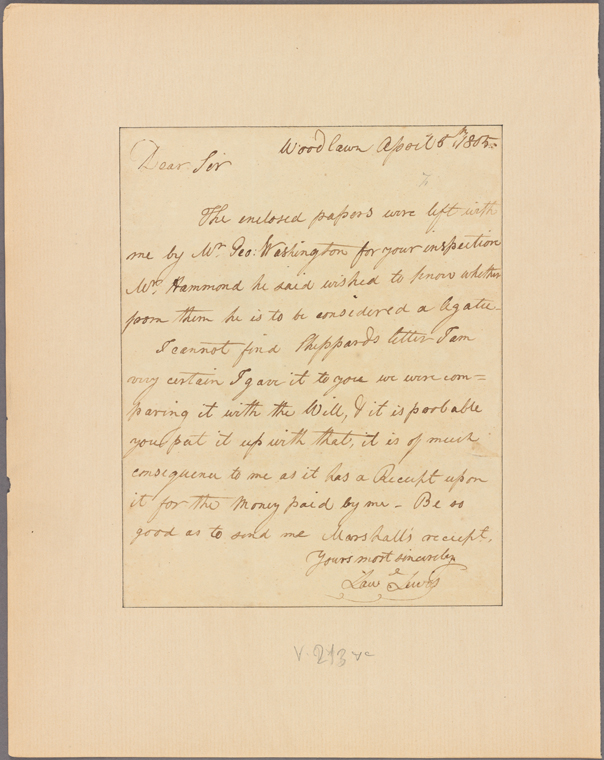 Woodlawn April 5th 1805.
Dear Sir
The enclosed papers were left with
me by Mr. Geo: Washington for your inspection
Mr. Hammond he said wished to know whether
from them he is to be considered a
I cannot find Sheppards letter I am
very certain I gave it to you we were com=
paring it with the Will, & it is porbable
you put it up with that, it is of much
consequence to me as it has a Receipt upon
it for the Money paid by me – Be so
good as to send me Marshall's receipt,
Yours most sincerely
Lawe Lewis
213